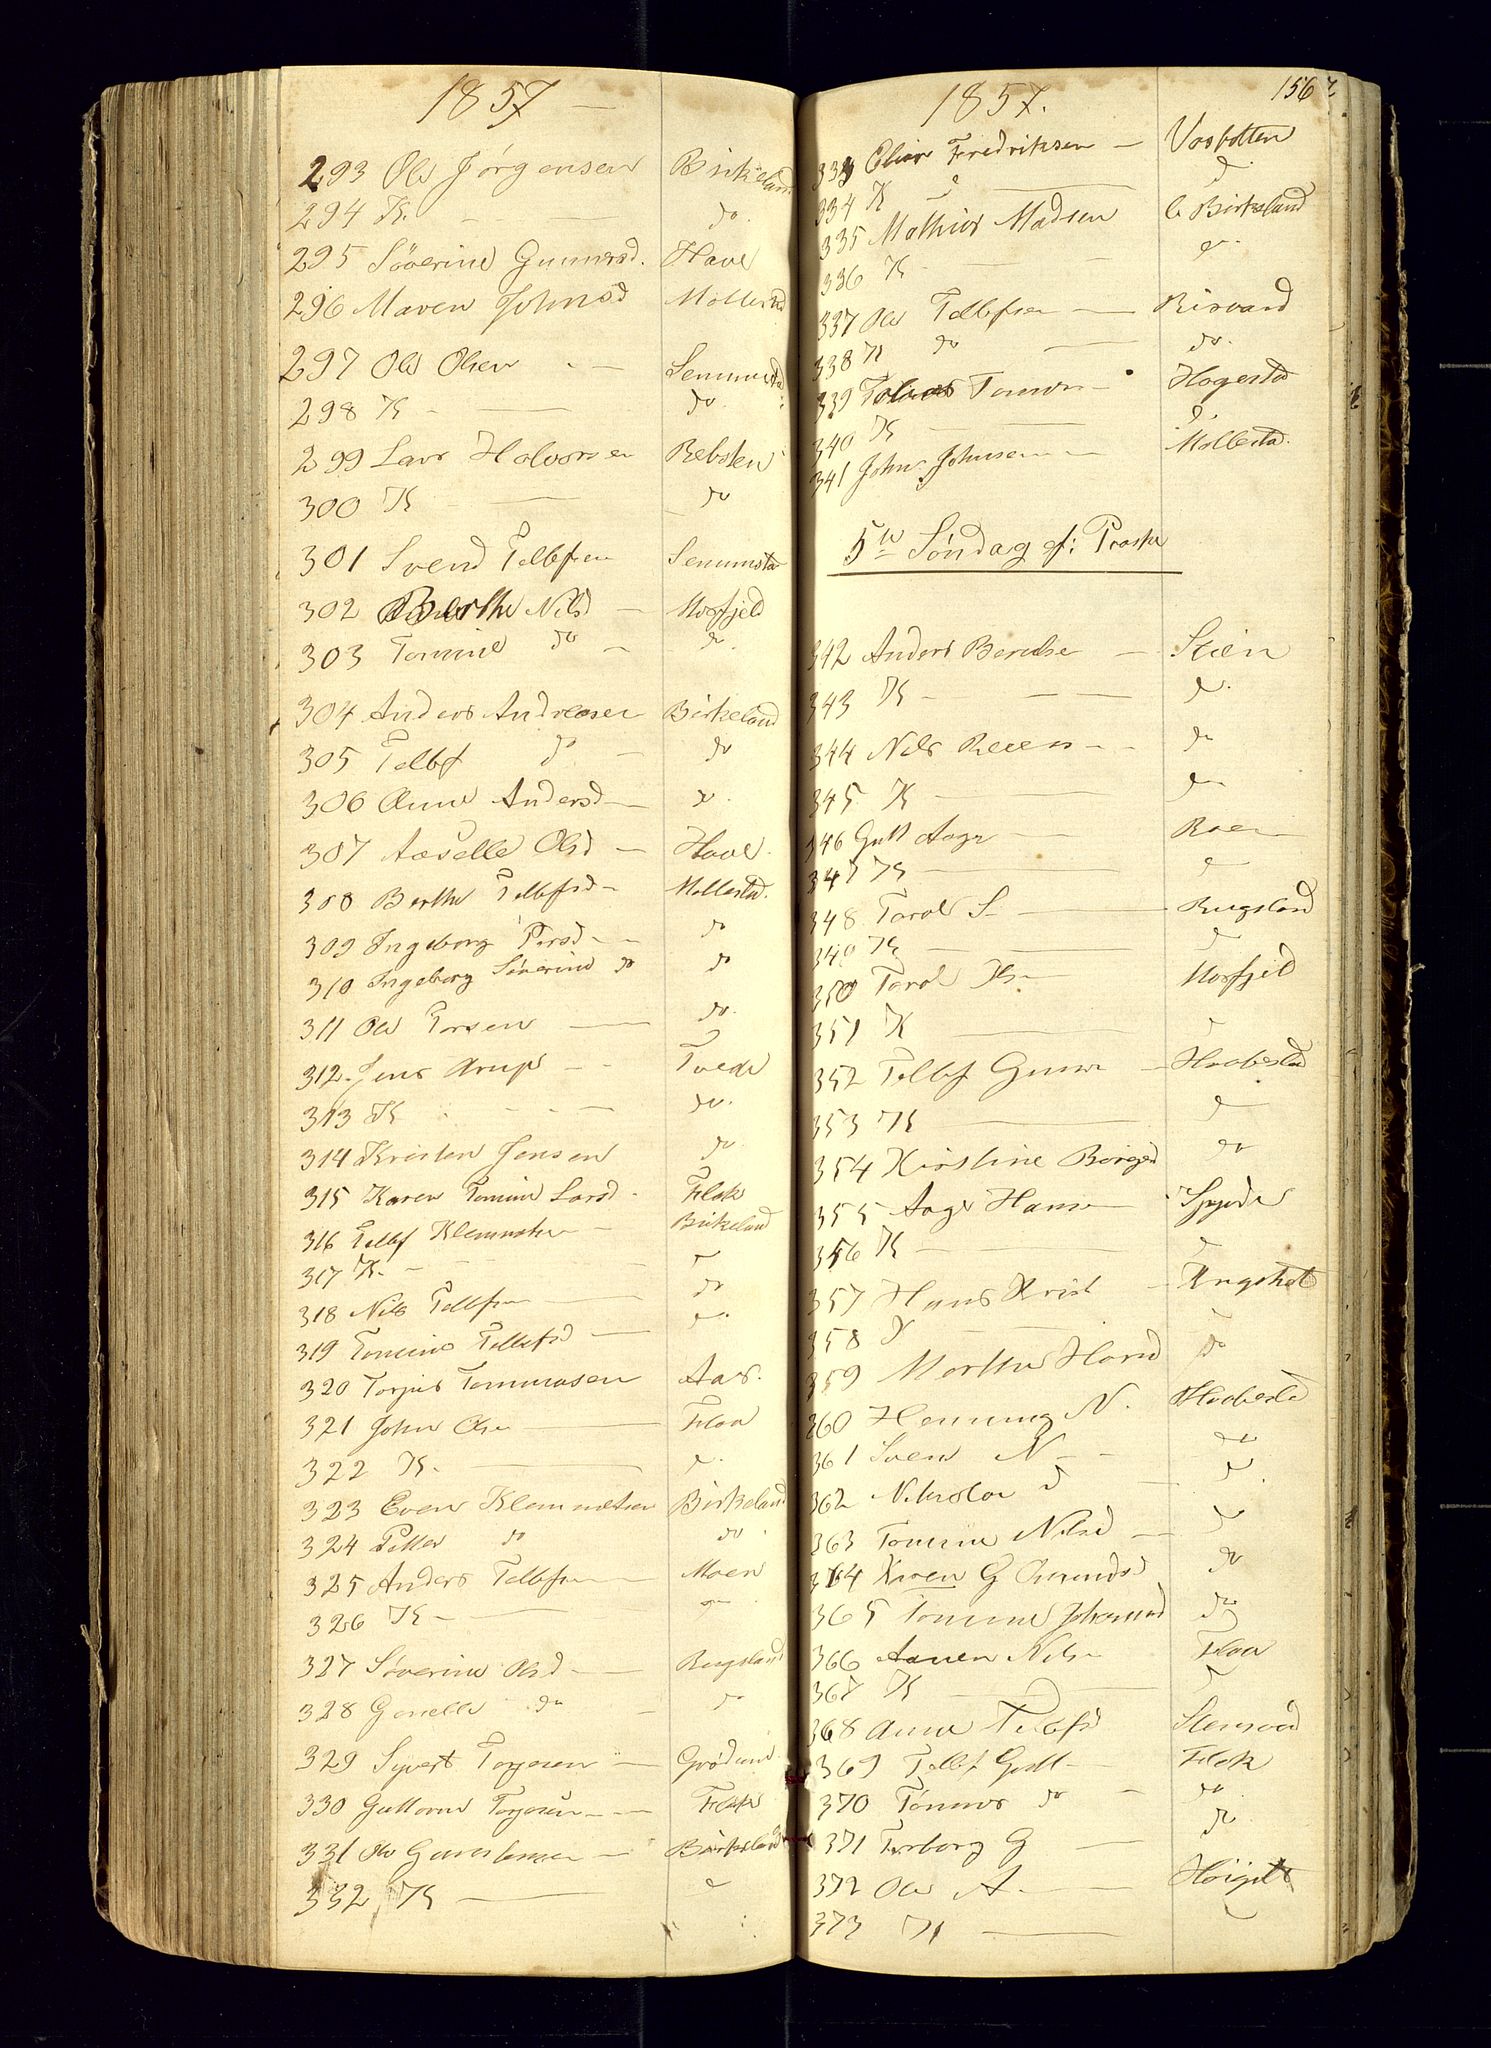 1857 —
293 Ole Jörgensen Birkeland
294 K. — — do.
295 Söverine Gunnersd. Have
296 Maren Johnsd Mollestad
297 Ole Olsen - — Senumstad
298 K - — do
299 Lars Halvorsen Rebsten
300 K — do
301 Svend Tellefsen Senumsta
302 Berthe Nilsd — Morfjeld
303 Tomine do — do
304 Anders Andreasen Birkeland
305 Tellef do — do
306 Anne Andersd — do.
307 Aaselle Olsd — Have.
308 Berthe Tellefsd - Mollestad.
309 Ingeborg Persd - - do
310 Ingeborg Söverine do do
311 Ole Torsen — do.
312. Jens Arup — - Tvede
313 K - - — do.
314 Kristen Jensen do
315 Karen Tomine Larsd - Flak
316 Tellef Klemmetsen — Birkeland
317 K. - — do
318 Nils Tellefsen — do
319 Tomine Tellefsd — do.
320 Torjus Tommasen Aas.
321 John Olsen — Flaa
322 K. — do.
323 Even Klemmetsen Birkeland
324 Petter do do
325 Anders Tellefsen — Moen
326 K — do
327 Söverine Olsd — Rugsland
328 Gunelle do — do
329 Syvert Torjesen — Grödum
330 Guttorm Torjesen — — Flak
331 Ole — Birkeland
332 K — do
1857.
156
333 Elias Fredriksen — Vasbotten
334 K do — do
335 Mathias Madsen Birkeland
336 K - — do.
337 Ole Tellefsen — Risvand
338 K do — do.
339 Tobias — Hogestad
340 K — do
341 John Johnsen — Mollestad.
5te Söndag ef: Paaske
342 Anders Berntsen — Stien
343 K — — — do.
344 Nils - - do
345 K — do
346 Gutt Aage — Roen
347 K — do
348 Tarol S — Rugsland
349 K — do
350 Tarol K — Morfjeld
351 K — do
352 Tellef Gunn — Haabestad
353 K — do
354 Kirstine Börges do
355 Aage Hansen —
356 K — do
357 Hans Krist —
358 K — do
359 Marthe Hansd do
360 Henning N. Haabestd
361 Sven N — - do
362 Nikolai d — do.
363 Tomine Nilsd — do
364 Karen G do
365 Tomine do
366 Aanen Nils Flaa
367 K — do
368 Anne Tellefsd
369 Tellef Gutt — Flak
370 Tönnes do — do
371 Torborg G — do
372 Ole A. —
373 K —